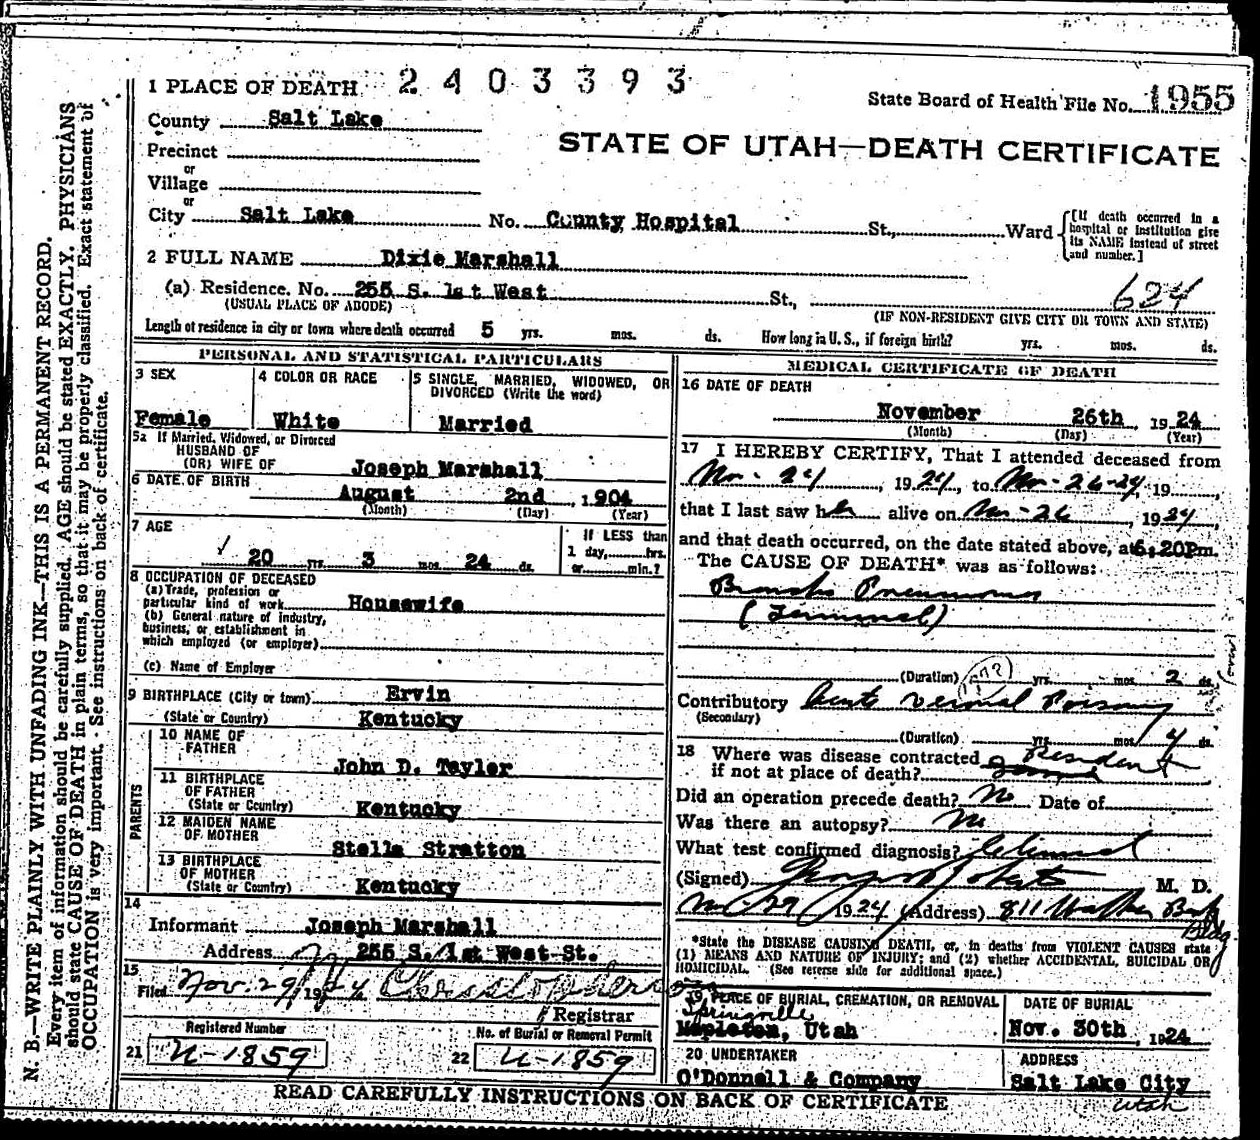 1 PLACE OF DEATH 2403393
State Board of Health File No. 1955
County Salt Lake
STATE OF UTAH—DEATH CERTIFICATE
Precinct
or
Village
or
City Salt Lake No. County Hospital St., Ward [If death occurred in a hospital or institution give its NAME instead of street and number.]
2 FULL NAME Dixie Marshall
(a) Residence. No. 255 S. 1st West St., 624
(USUAL PLACE OF ABODE) (IF NON-RESIDENT GIVE CITY OR TOWN AND STATE)
Length of residence in city or town where death occurred 5 yrs. mos. ds. How long in U. S., if foreign birth? yrs. mos. ds.
PERSONAL AND STATISTICAL PARTICULARS
3 SEX
Female
4 COLOR OR RACE
White
5 SINGLE, MARRIED, WIDOWED, OR
DIVORCED (Write the word)
Married
5a If Married, Widowed, or Divorced
HUSBAND OF
(OR) WIFE OF Joseph Marshall
6 DATE OF BIRTH
August 2nd , 1904
(Month) (Day) (Year)
7 AGE
20 yrs. 3 mos. 24 ds.
If LESS than
1 day, hrs.
or min.?
8 OCCUPATION OF DECEASED
(a) Trade, profession or
particular kind of work Housewife
(b) General nature of industry,
business, or establishment in
which employed (or employer)
(c) Name of Employer
9 BIRTHPLACE (City or town) Ervin
(State or Country) Kentucky
PARENTS
10 NAME OF
FATHER
John D. Tayler
11 BIRTHPLACE
OF FATHER
(State or Country) Kentucky
12 MAIDEN NAME
OF MOTHER
Stella Stratton
13 BIRTHPLACE
OF MOTHER
(State or Country) Kentucky
14
Informant Joseph Marshall
Address 255 S. 1st West St.
15
Filed Nov. 29, 1924
Registrar
Registered Number
21 U-1859
No. of Burial or Removal Permit
22 U-1859
MEDICAL CERTIFICATE OF DEATH
16 DATE OF DEATH
November 26th, 1924
(Month) (Day) (Year)
17 I HEREBY CERTIFY, That I attended deceased from
Nov-24, 1924, to Nov-26-24, 19
that I last saw her alive on Nov-26, 1924,
and that death occurred, on the date stated above, at 6:20Pm.
The CAUSE OF DEATH* was as follows:
Broncho Pneumonia
(Terminal)
(Duration) yrs. mos. 2 ds.
Contributory Acute
(Secondary)
(Duration) yrs. mos. 4 ds.
18 Where was disease contracted Resident
if not at place of death?
Did an operation precede death? No Date of
Was there an autopsy? No
What test confirmed diagnosis? Clinical
(Signed) M. D.
Nov-29, 1924 (Address) 811 Walker Bank
Bldg
*State the DISEASE CAUSING DEATH, or, in deaths from VIOLENT CAUSES state
(1) MEANS AND NATURE OF INJURY; and (2) whether ACCIDENTAL, SUICIDAL OR
HOMICIDAL. (See reverse side for additional space.)
19 PLACE OF BURIAL, CREMATION, OR REMOVAL
Springville
Mapleton, Utah
DATE OF BURIAL
Nov. 30th, 1924
20 UNDERTAKER
O'Donnell & Company
ADDRESS
Salt Lake City
Utah
READ CAREFULLY INSTRUCTIONS ON BACK OF CERTIFICATE
N. B.—WRITE PLAINLY WITH UNFADING INK—THIS IS A PERMANENT RECORD.
Every item of information should be carefully supplied. AGE should be stated EXACTLY. PHYSICIANS
should state CAUSE OF DEATH in plain terms, so that it may be properly classified. Exact statement of
OCCUPATION is very important. See instructions on back of certificate.